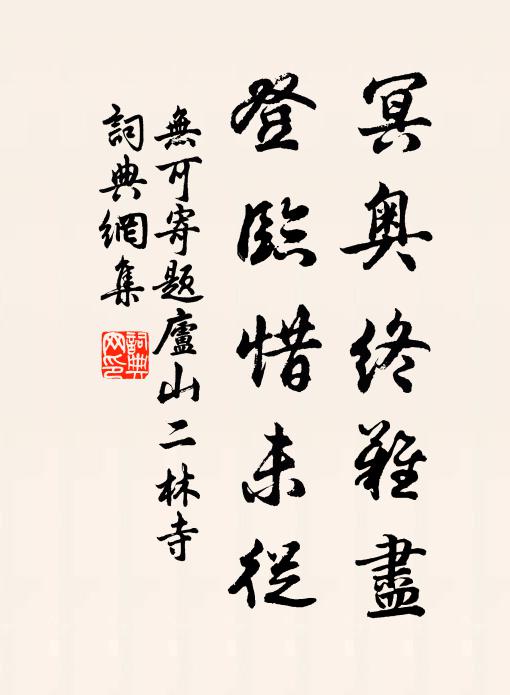 冥奧終難盡
登臨惜未從
無可寄題廬山二林寺
詞典網集
詞典網印